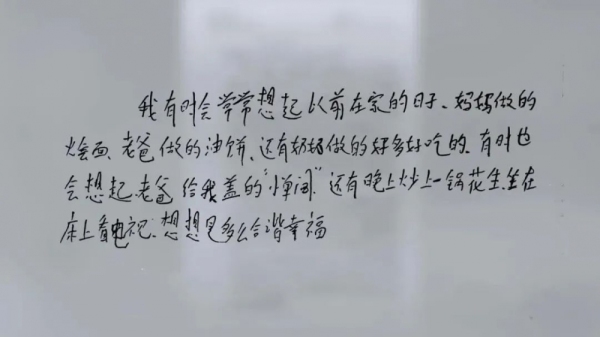 我有时会常常想起以前在家的日子、妈妈做的
烩面、老爸做的油饼、还有奶奶做的好多好吃的、有时也
会想起、老爸给我盖的“单间”还有晚上炒上一锅花生、坐在
床上看电视、想想是多么合谐幸福